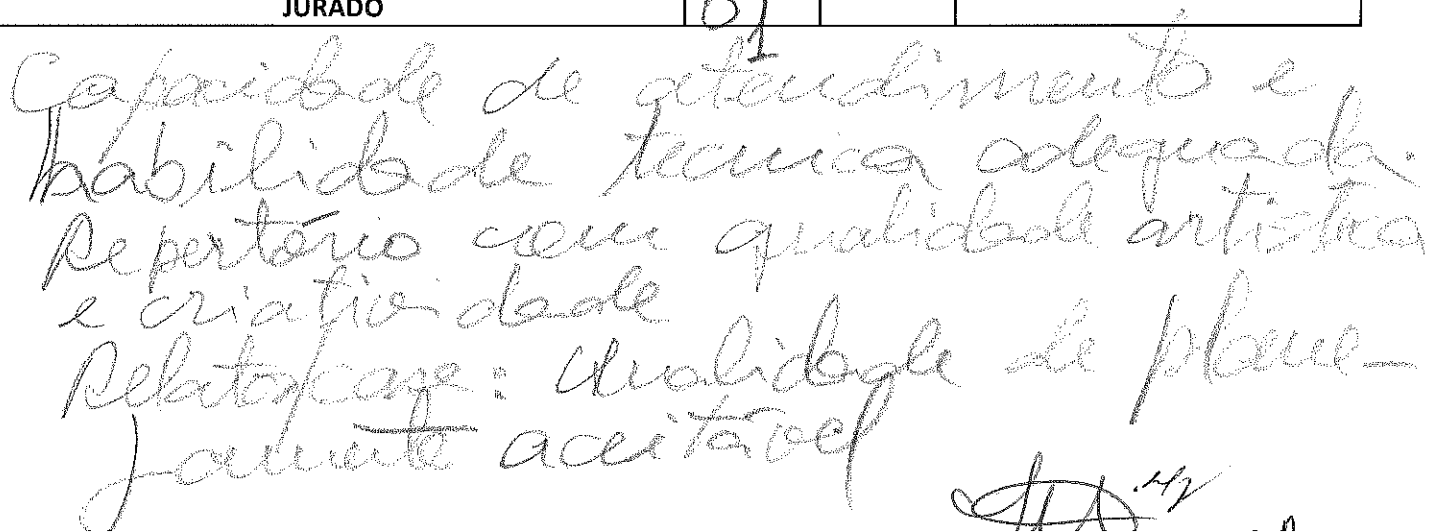 JURADO 01
Capacidade de atendimento e
habilidade técnica adequada.
Repertório com qualidade artística
e criatividade
Relato/case: Qualidade de plane-
jamento aceitável